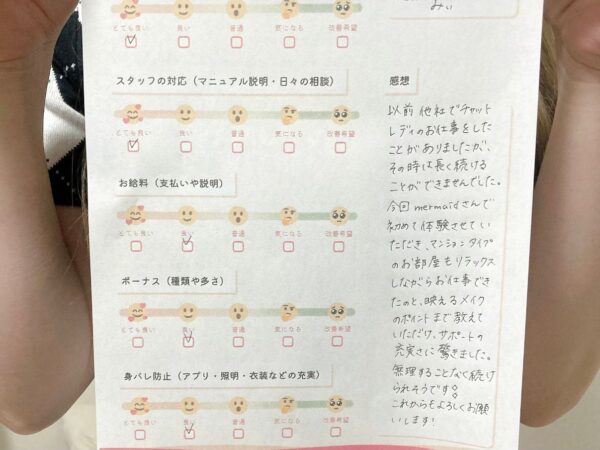 とても良い 良い 普通 気になる 改善希望
スタッフの対応（マニュアル説明・日々の相談）
とても良い 良い 普通 気になる 改善希望
お給料（支払いや説明）
とても良い 良い 普通 気になる 改善希望
ボーナス（種類や多さ）
とても良い 良い 普通 気になる 改善希望
身バレ防止（アプリ・照明・衣装などの充実）
とても良い 良い 普通 気になる 改善希望
みい
感想
以前他社でチャット
レディのお仕事をした
ことがありましたが、
その時は長く続ける
ことができませんでした。
今回mermaidさんで
初めて体験させてい
ただき、マンションタイプ
のお部屋もリラックス
しながらお仕事でき
たのと、映えるメイク
のポイントまで教えて
いただけ、サポートの
充実さに驚きました。
無理することなく続け
られそうです!
これからもよろしくお願
いします!